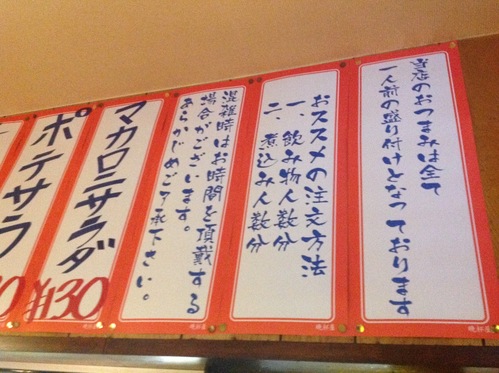 当店のおつまみは全て
一人前の盛り付けとなっております
おススメの注文方法
一、飲み物人数分
二、煮込み人数分
混雑時はお時間を頂戴する
場合がございます。
あらかじめご了承下さい。
マカロニサラダ
¥130
ポテサラ